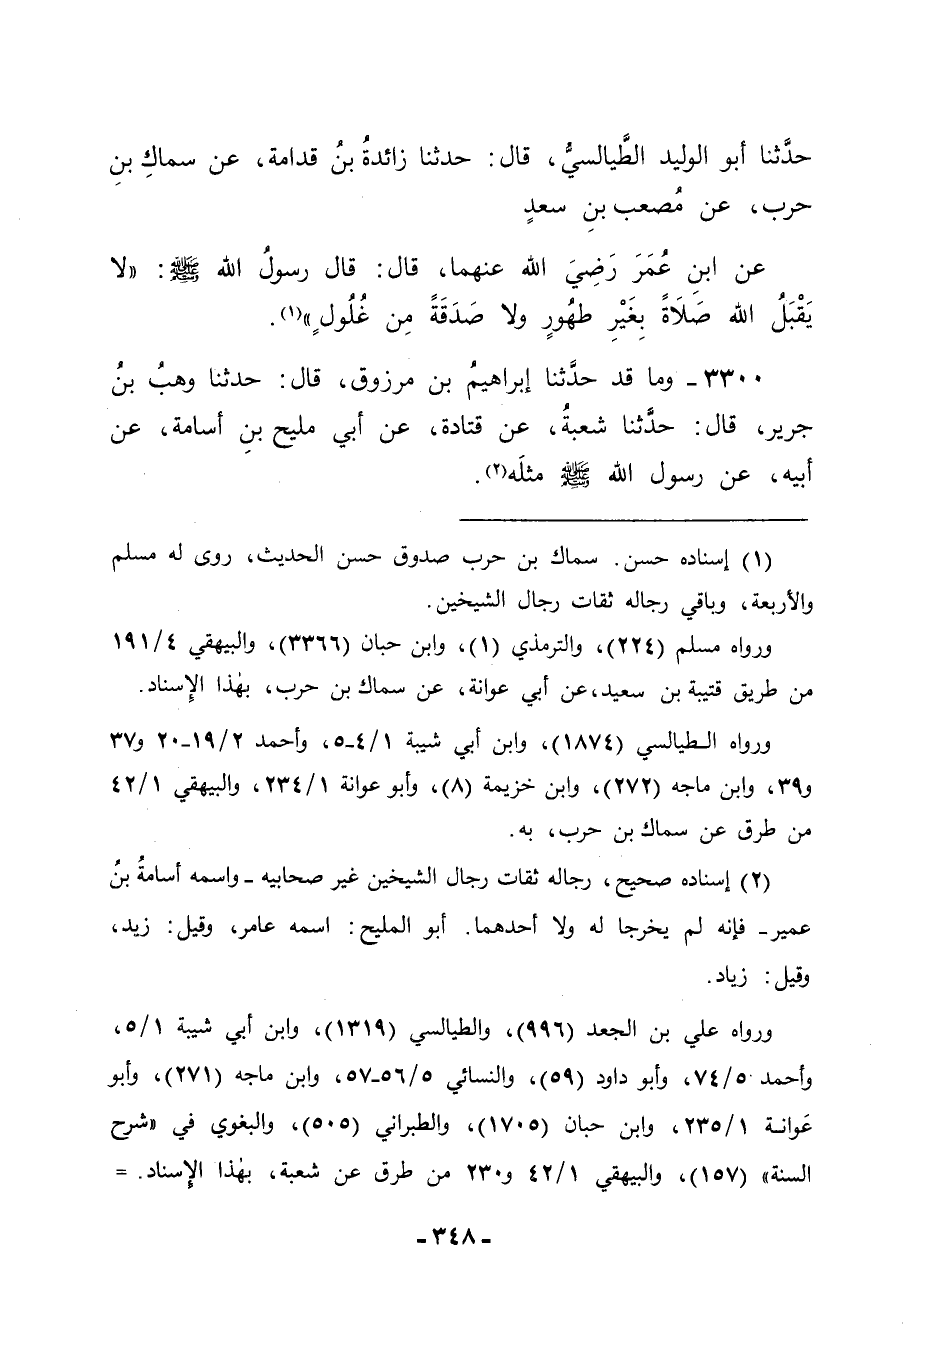 حدَّثنا أبو الوليد الطَّيالسيُّ، قال: حدثنا زائدةُ بنُ قدامة، عن سماكِ بنِ
حرب، عن مُصعب بنِ سعدٍ
عن ابنِ عُمَرَ رَضِيَ الله عنهما، قال: قال رسولُ الله ﷺ: «لا
يَقْبَلُ الله صَلَاةً بِغَيْرِ طهُورٍ ولا صَدَقَةً مِن غُلُولٍ»(١).
٣٣٠٠ـ وما قد حدَّثنا إبراهيمُ بن مرزوق، قال: حدثنا وهبُ بنُ
جرير، قال: حدَّثنا شعبةُ، عن قتادة، عن أبي مليح بنِ أسامة، عن
أبيه، عن رسول الله ﷺ مثلَه(٢).
(١) إسناده حسن. سماك بن حرب صدوق حسن الحديث، روى له مسلم
والأربعة، وباقي رجاله ثقات رجال الشيخين.
ورواه مسلم (٢٢٤)، والترمذي (١)، وابن حبان (٣٣٦٦)، والبيهقي ١٩١/٤
من طريق قتيبة بن سعيد،عن أبي عوانة، عن سماك بن حرب، بهٰذا الإسناد.
ورواه الطيالسي (١٨٧٤)، وابن أبي شيبة ٤/١ـ٥، وأحمد ١٩/٢ـ٢٠ و٣٧
و٣٩، وابن ماجه (٢٧٢)، وابن خزيمة (٨)، وأبو عوانة ٢٣٤/١، والبيهقي ٤٢/١
من طرق عن سماك بن حرب، به.
(٢) إسناده صحيح، رجاله ثقات رجال الشيخين غير صحابيه ـ واسمه أسامةُ بنُ
عمير ـ فإنه لم يخرجا له ولا أحدهما. أبو المليح: اسمه عامر، وقيل: زيد،
وقيل: زياد.
ورواه علي بن الجعد (٩٩٦)، والطيالسي (١٣١٩)، وابن أبي شيبة ٥/١،
وأحمد ٧٤/٥، وأبو داود (٥٩)، والنسائي ٥٦/٥ـ٥٧، وابن ماجه (٢٧١)، وأبو
عَوانة ٢٣٥/١، وابن حبان (١٧٠٥)، والطبراني (٥٠٥)، والبغوي في «شرح
السنة» (١٥٧)، والبيهقي ٤٢/١ و٢٣٠ من طرق عن شعبة، بهٰذا الإسناد. =
ـ ٣٤٨ ـ